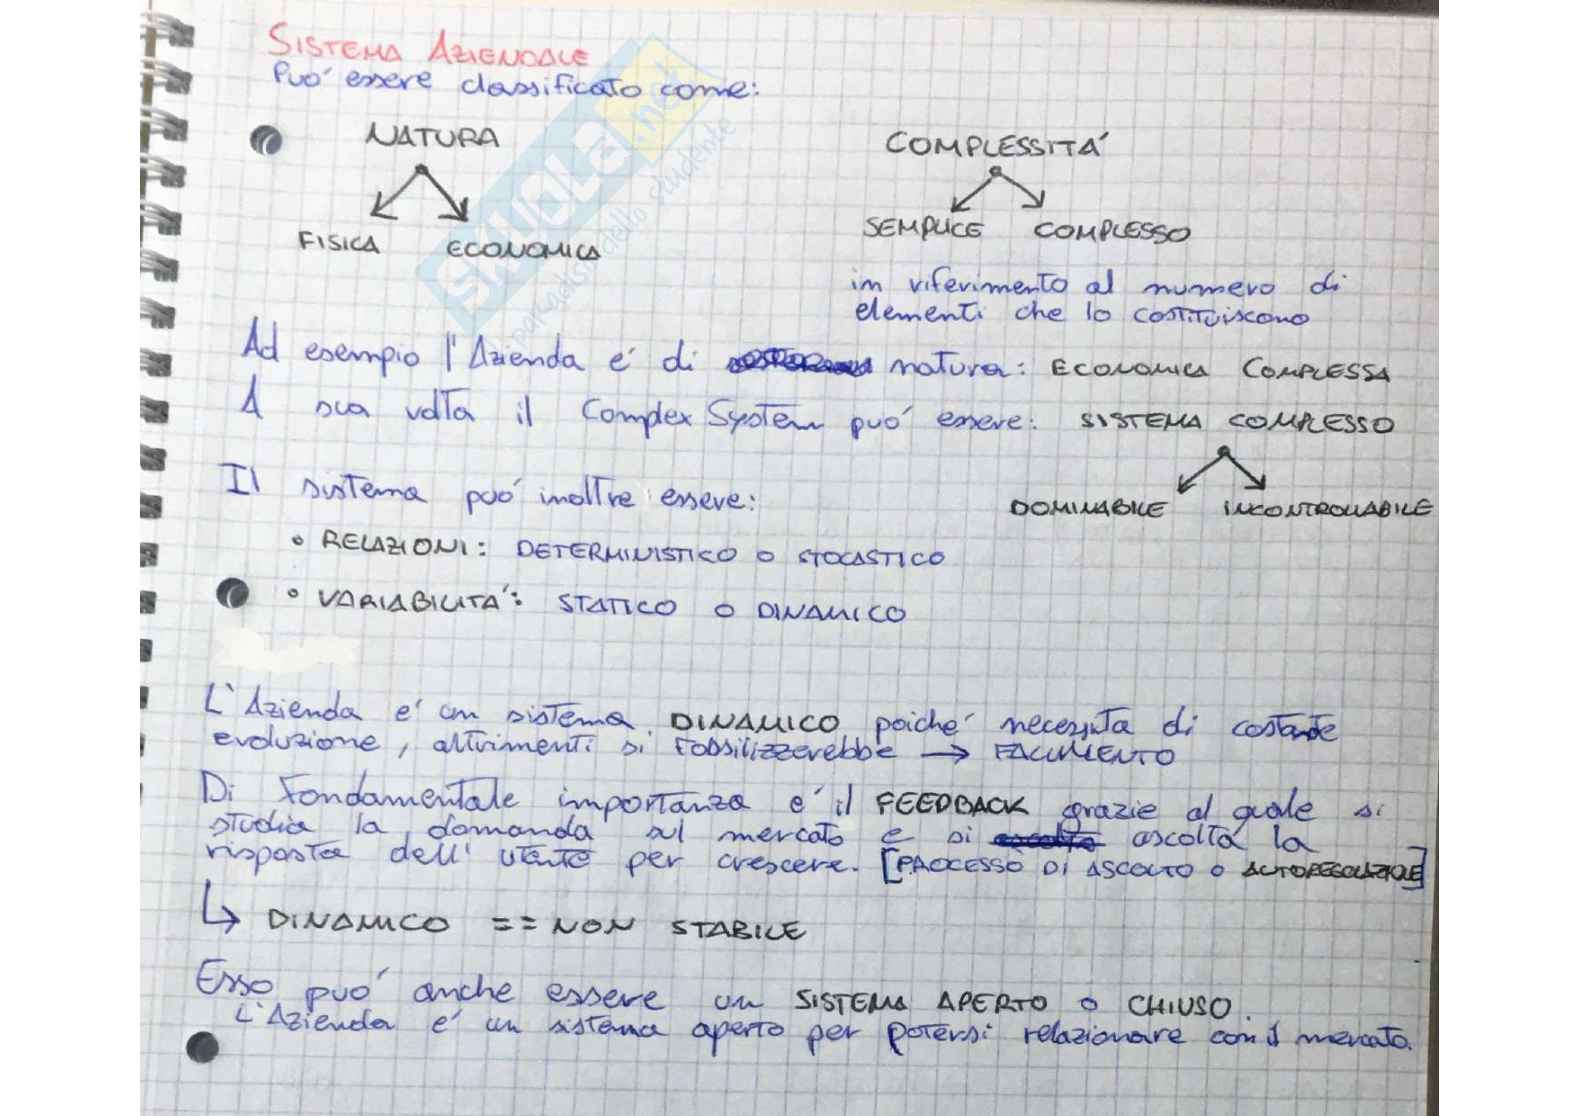 SISTEMA AZIENDALE
Può essere classificato come:
NATURA
FISICA ECONOMICA
COMPLESSITÀ
SEMPLICE COMPLESSO
in riferimento al numero di
elementi che lo costituiscono
Ad esempio l'Azienda è di natura: ECONOMICA COMPLESSA
A sua volta il Complex System può essere: SISTEMA COMPLESSO
DOMINABILE INCONTROLLABILE
Il sistema può inoltre essere:
• RELAZIONI: DETERMINISTICO O STOCASTICO
• VARIABILITÀ: STATICO O DINAMICO
L'Azienda è un sistema DINAMICO poiché necessita di costante
evoluzione, altrimenti si fossilizzerebbe → FALLIMENTO
Di fondamentale importanza è il FEEDBACK grazie al quale si
studia la domanda sul mercato e si ascolta la
risposta dell'utente per crescere. [PROCESSO DI ASCOLTO O AUTOREGOLAZIONE]
↳ DINAMICO == NON STABILE
Esso può anche essere un SISTEMA APERTO O CHIUSO.
L'Azienda è un sistema aperto per potersi relazionare con il mercato.
SKUOLA.net
paradiso dello studente